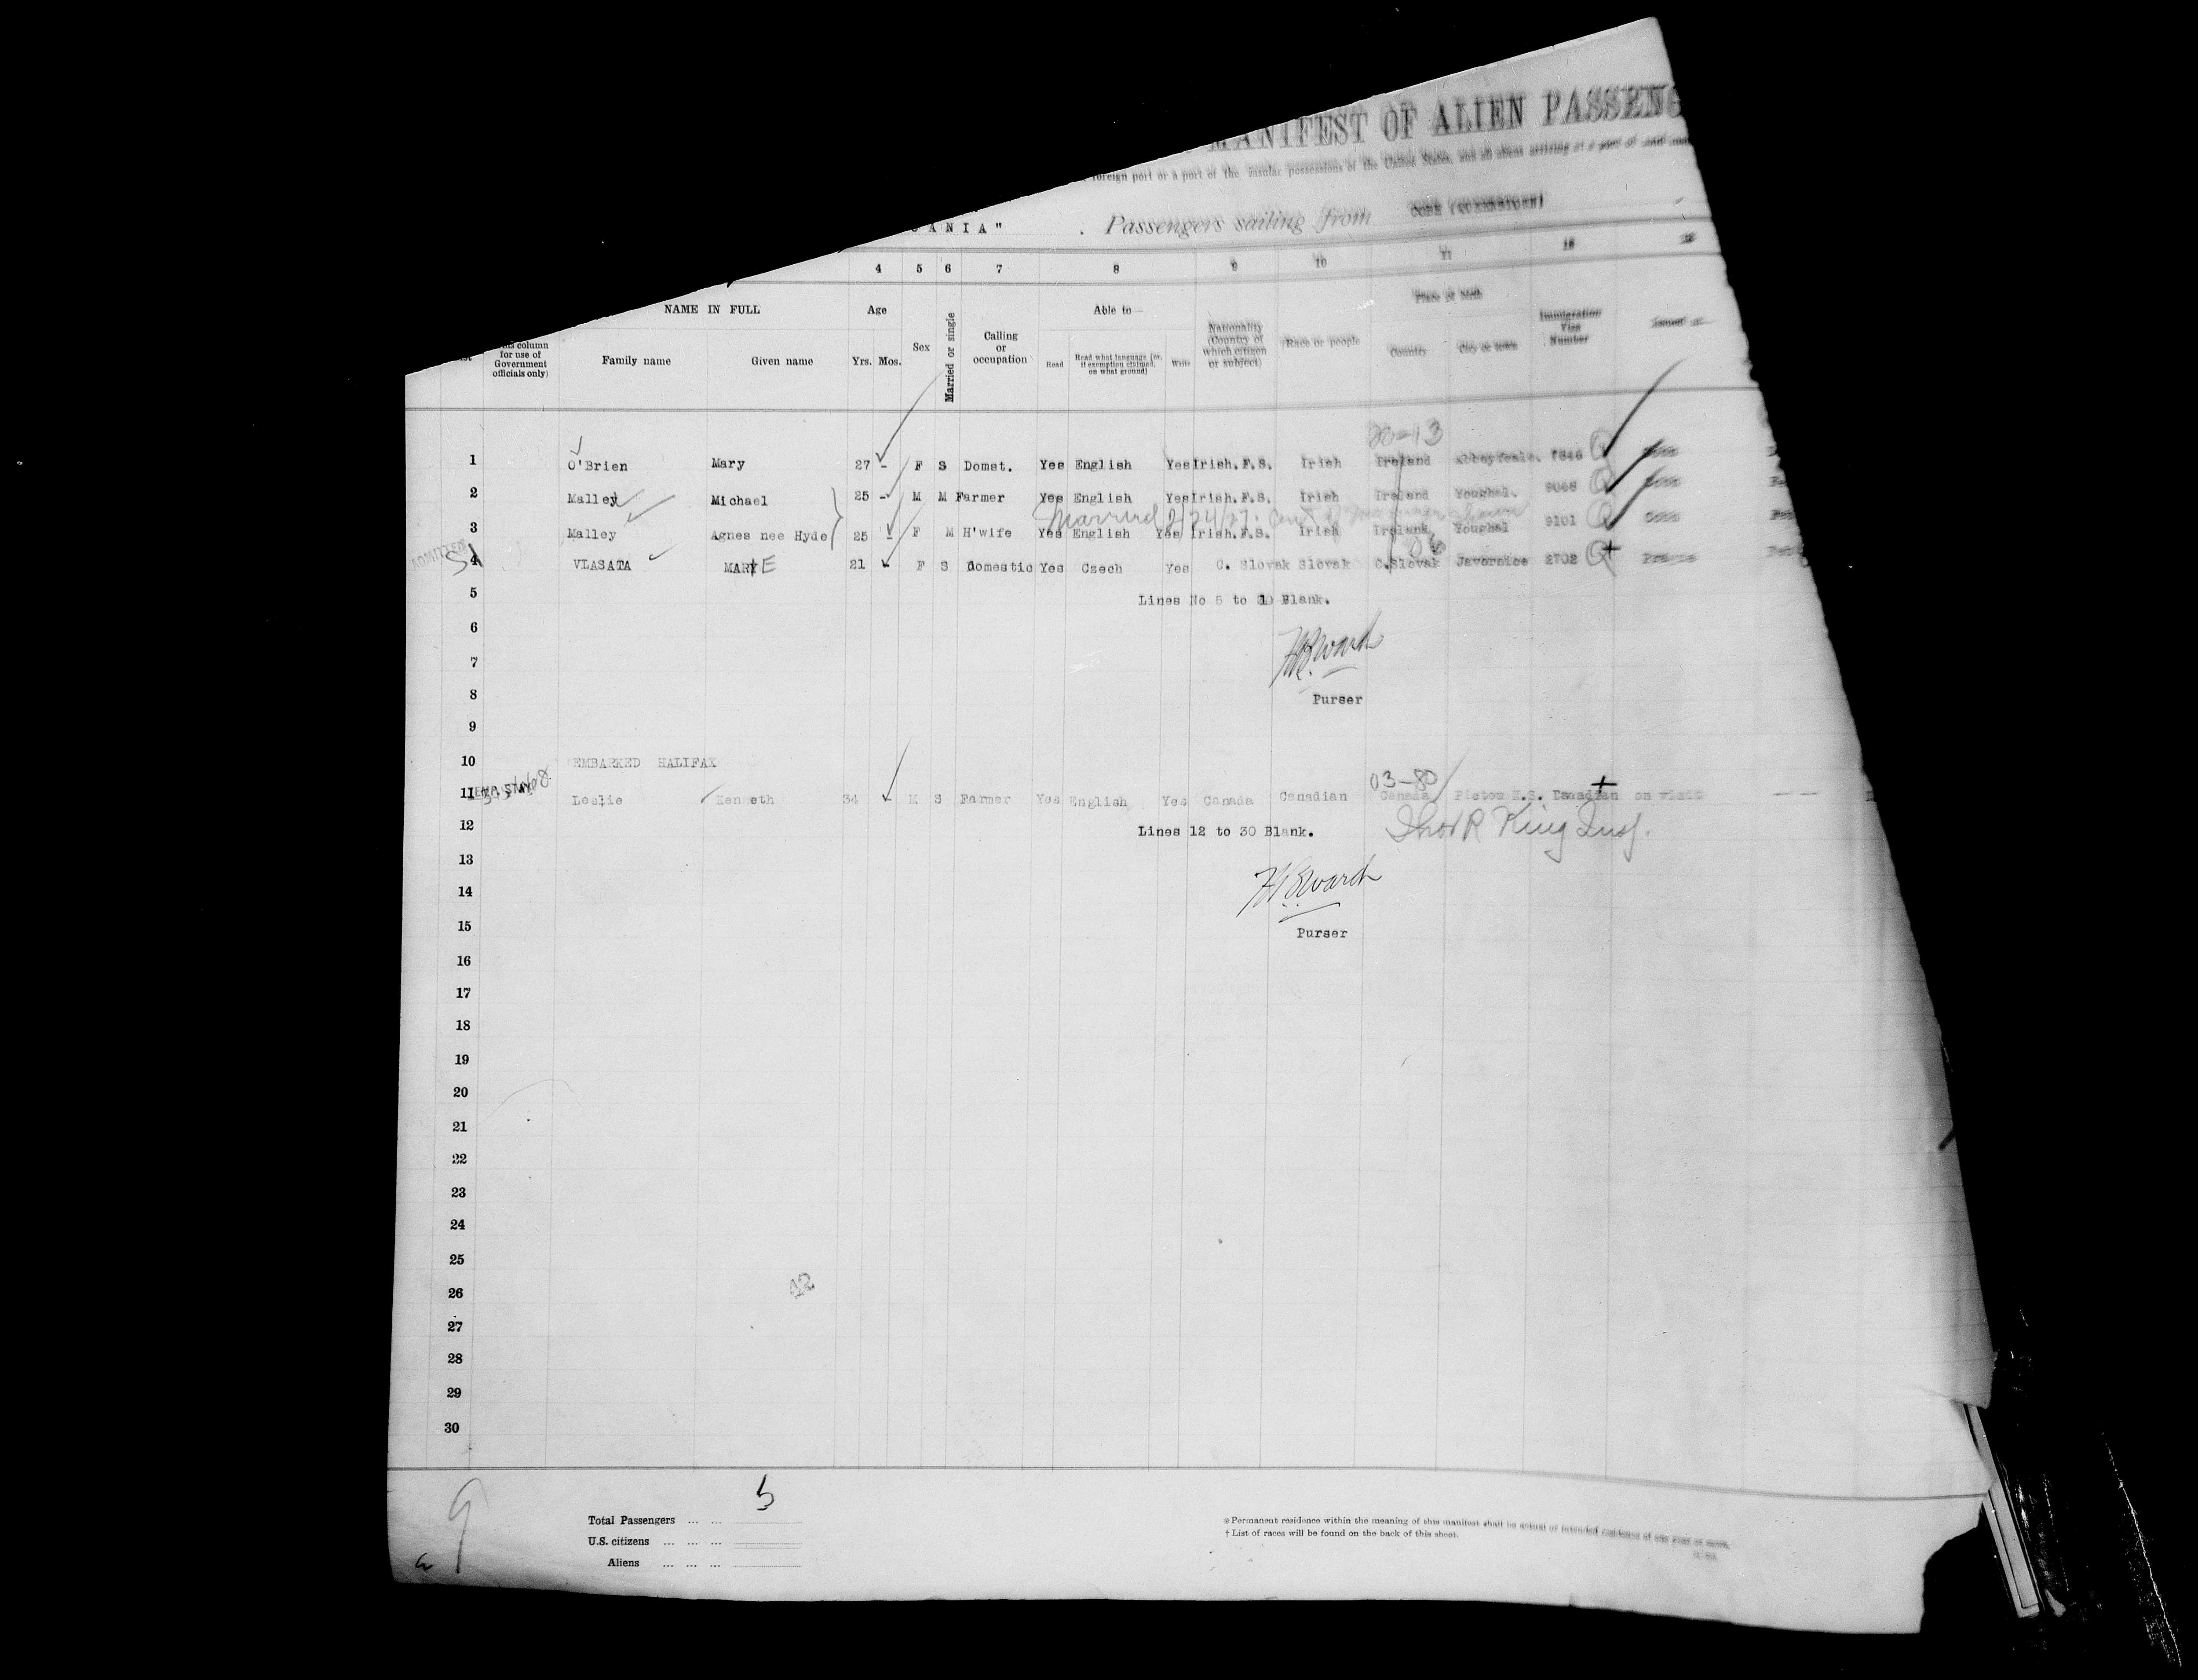 MANIFEST OF ALIEN PASSENG
foreign port or a port of the insular possessions of the United States, and all aliens arriving at a port of said
ANIA" . Passengers sailing from COBH (QUEENSTOWN)
4 5 6 7 8 9 10 11 12
column for use of Government officials only)
NAME IN FULL
Family name Given name
Age
Yrs. Mos.
Sex
Married or single
Calling or occupation
Able to—
Read Read what language [or, if exemption claimed, on what ground] Write
Nationality (Country of which citizen or subject)
Race or people
Place of birth
Country City or town
Immigration Visa Number
Issued at
20-13
1 O'Brien Mary 27 - F S Domst. Yes English Yes Irish.F.S. Irish Ireland Abbeyfeale. 7846 Cobh
2 Malley Michael 25 - M M Farmer Yes English Yes Irish.F.S. Irish Ireland Youghal. 9068 Cobh
Married 2/24/27.
3 Malley Agnes nee Hyde 25 - F M H'wife Yes English Yes Irish.F.S. Irish Ireland Youghal 9101 Cobh
ADMITTED
4 VLASATA MARIE 21 F S Domestic Yes Czech Yes C. Slovak Slovak C.Slovak Javornice 2702 Prague
5 Lines No 5 to 10 Blank.
6
7
8 Purser
9
10 EMBARKED HALIFAX
03-80
11 Leslie Kenneth 34 M S Farmer Yes English Yes Canada Canadian Canada Pictou N.S. Canadian on visit
12 Lines 12 to 30 Blank. Thos R King Insp.
13
14
15 Purser
16
17
18
19
20
21
22
23
24
25
26 42
27
28
29
30
9
5
Total Passengers ... ...
U.S. citizens ... ... ...
Aliens ... ... ...
※Permanent residence within the meaning of this manifest shall be actual or intended residence of one year or more.
† List of races will be found on the back of this sheet.